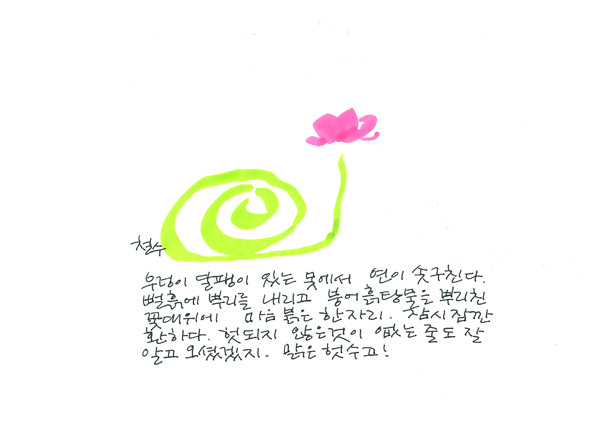 철수
우렁이 달팽이 있는 못에서 연이 솟구친다.
뻘흙에 뿌리를 내리고 붕어 흙탕물을 뿌리친
꽃대위에 마음 붉은 한자리. 잠시잠깐
환하다. 헛되지 않은것이 없는 줄도 잘
알고 오셨겠지. 맑은 헛수고!